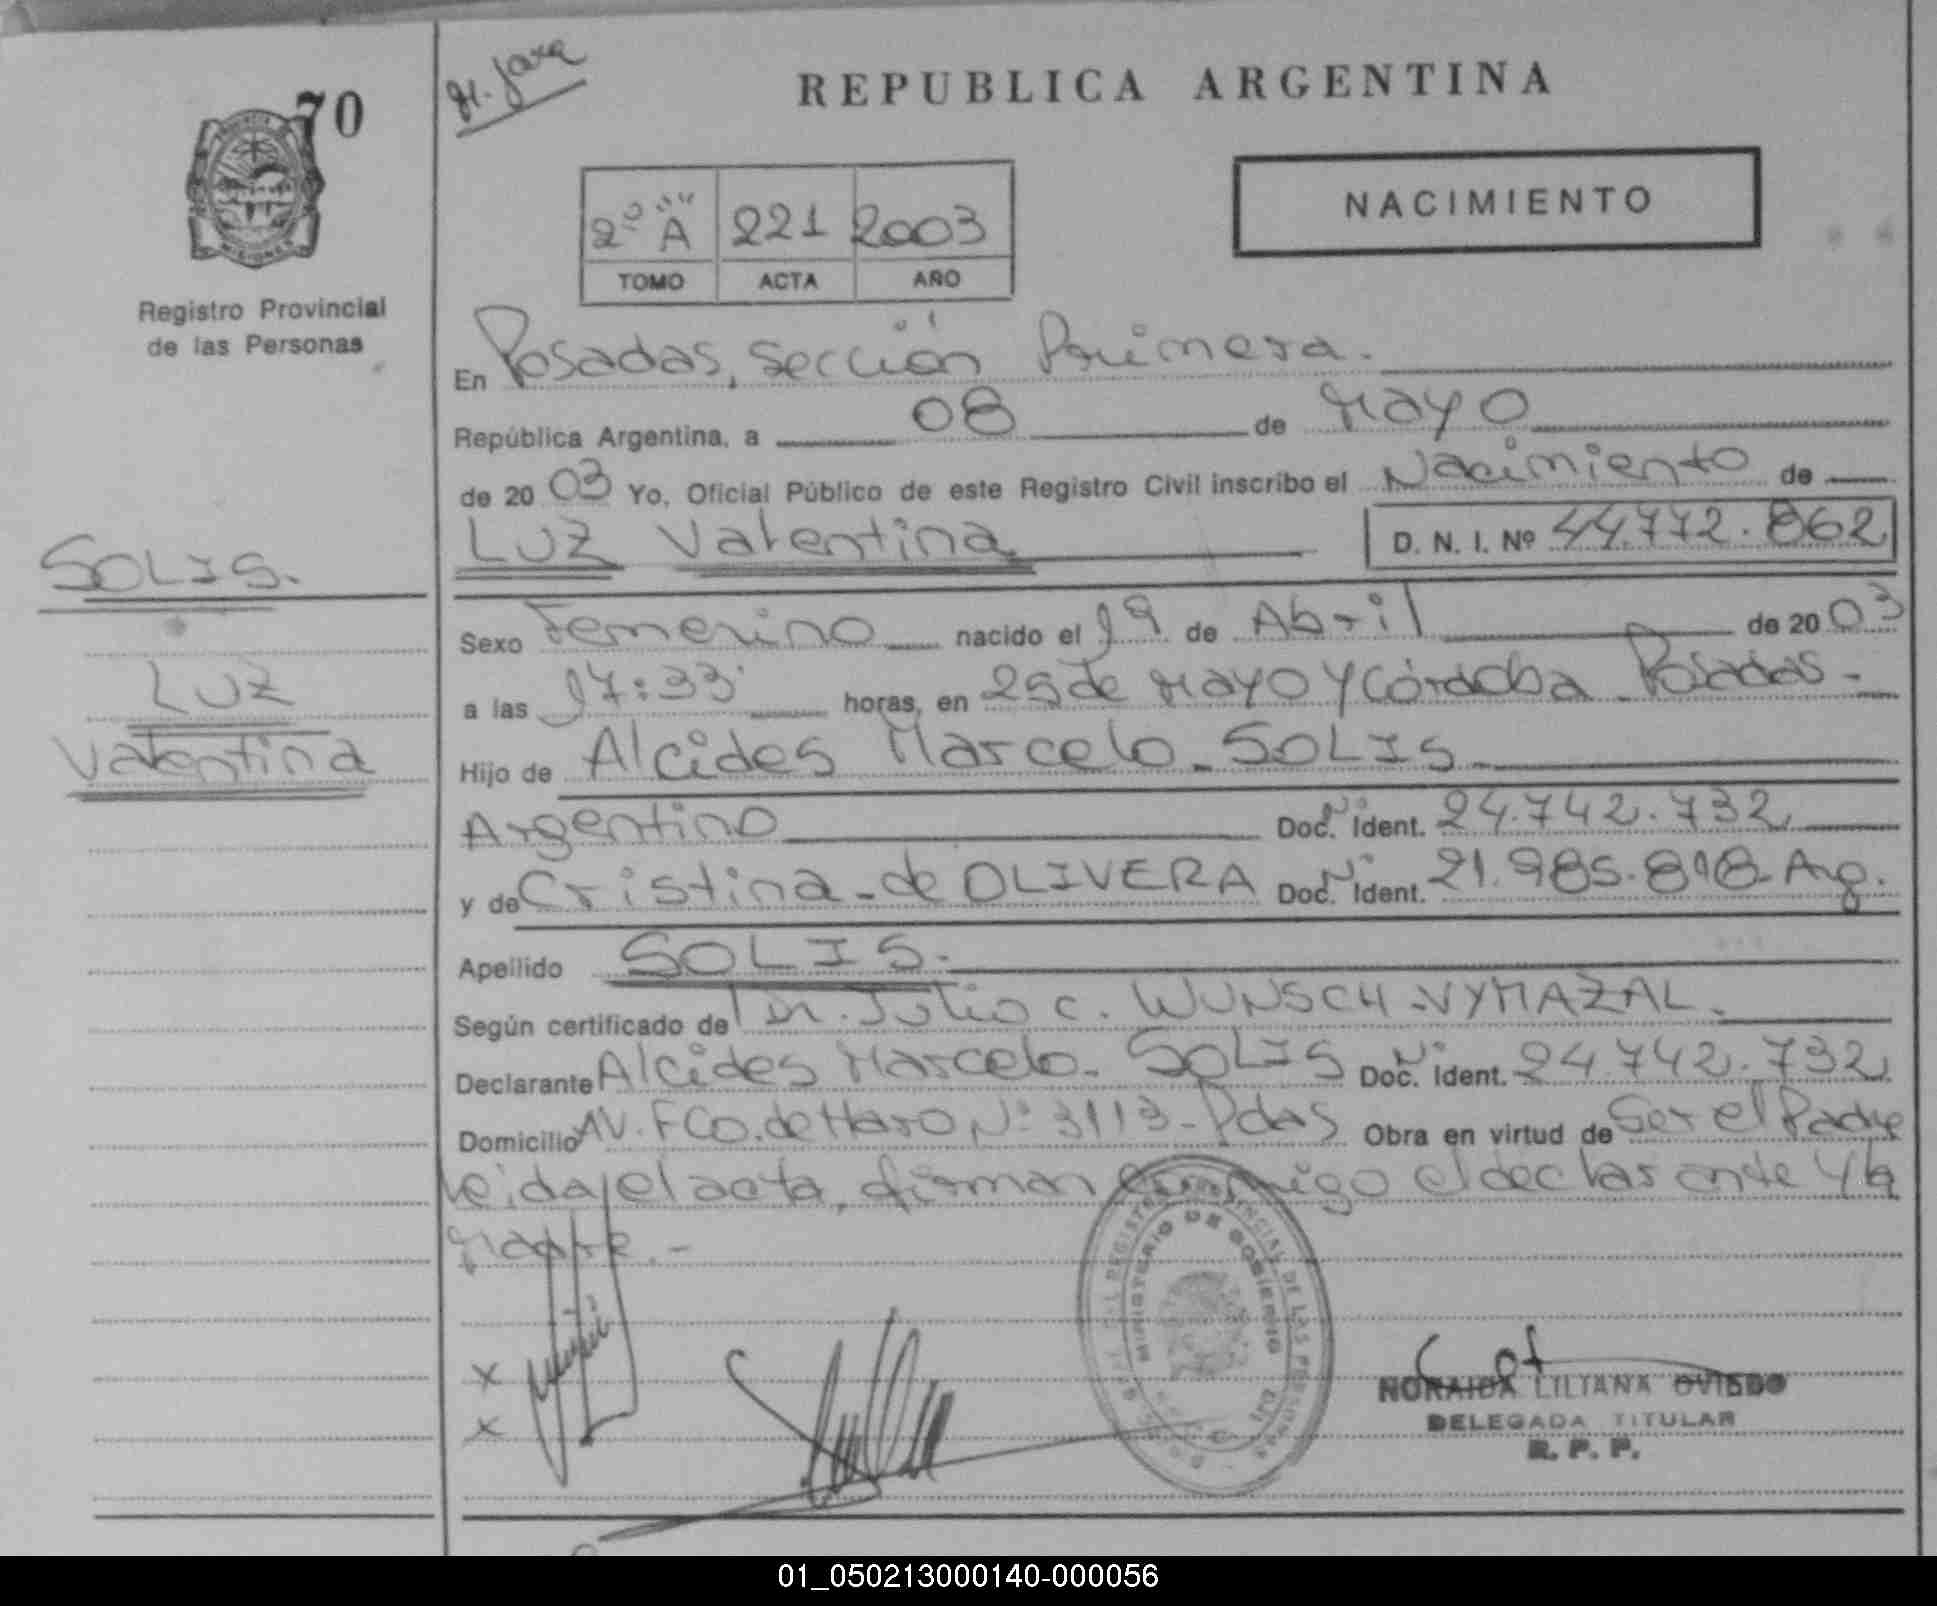 70
REPUBLICA ARGENTINA
NACIMIENTO
2º "A" 221 2003
TOMO ACTA AÑO
Registro Provincial
de las Personas
En Posadas, Sección Primera.
República Argentina, a 08 de Mayo
de 2003 Yo, Oficial Público de este Registro Civil inscribo el Nacimiento de
LUZ Valentina D. N. I. Nº 44.772.862
SOLIS.
LUZ
Valentina
Sexo Femenino nacido el 19 de Abril de 2003
a las 17:33 horas, en 25 de Mayo y Córdoba Posadas-
Hijo de Alcides Marcelo - SOLIS
Argentino Doc. Nº Ident. 24.742.732
y de Cristina - de OLIVERA Doc. Nº Ident. 21.985.818-Arg.
Apellido SOLIS.
Según certificado de Dr. Julio C. WUNSCH-VYMAZAL.
Declarante Alcides Marcelo - SOLIS Doc. Nº Ident. 24.742.732
Domicilio AV. FCO. de Haro Nº 3113-Pdas Obra en virtud de Ser el Padre
Leida el acta, firman conmigo el declarante y la
Madre.-
X
X
MINISTERIO DE GOBIERNO
NORAIDA LILIANA OVIEDO
DELEGADA TITULAR
R. P. P.
01_050213000140-000056